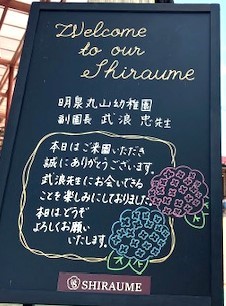 Welcome
to our
Shiraume
明泉丸山幼稚園
副園長 武浪 忠先生
本日はご来園いただき
誠にありがとうございます。
武浪先生にお会いできる
ことを楽しみにしておりました。
本日はどうぞ
よろしくお願い
いたします。
SHIRAUME